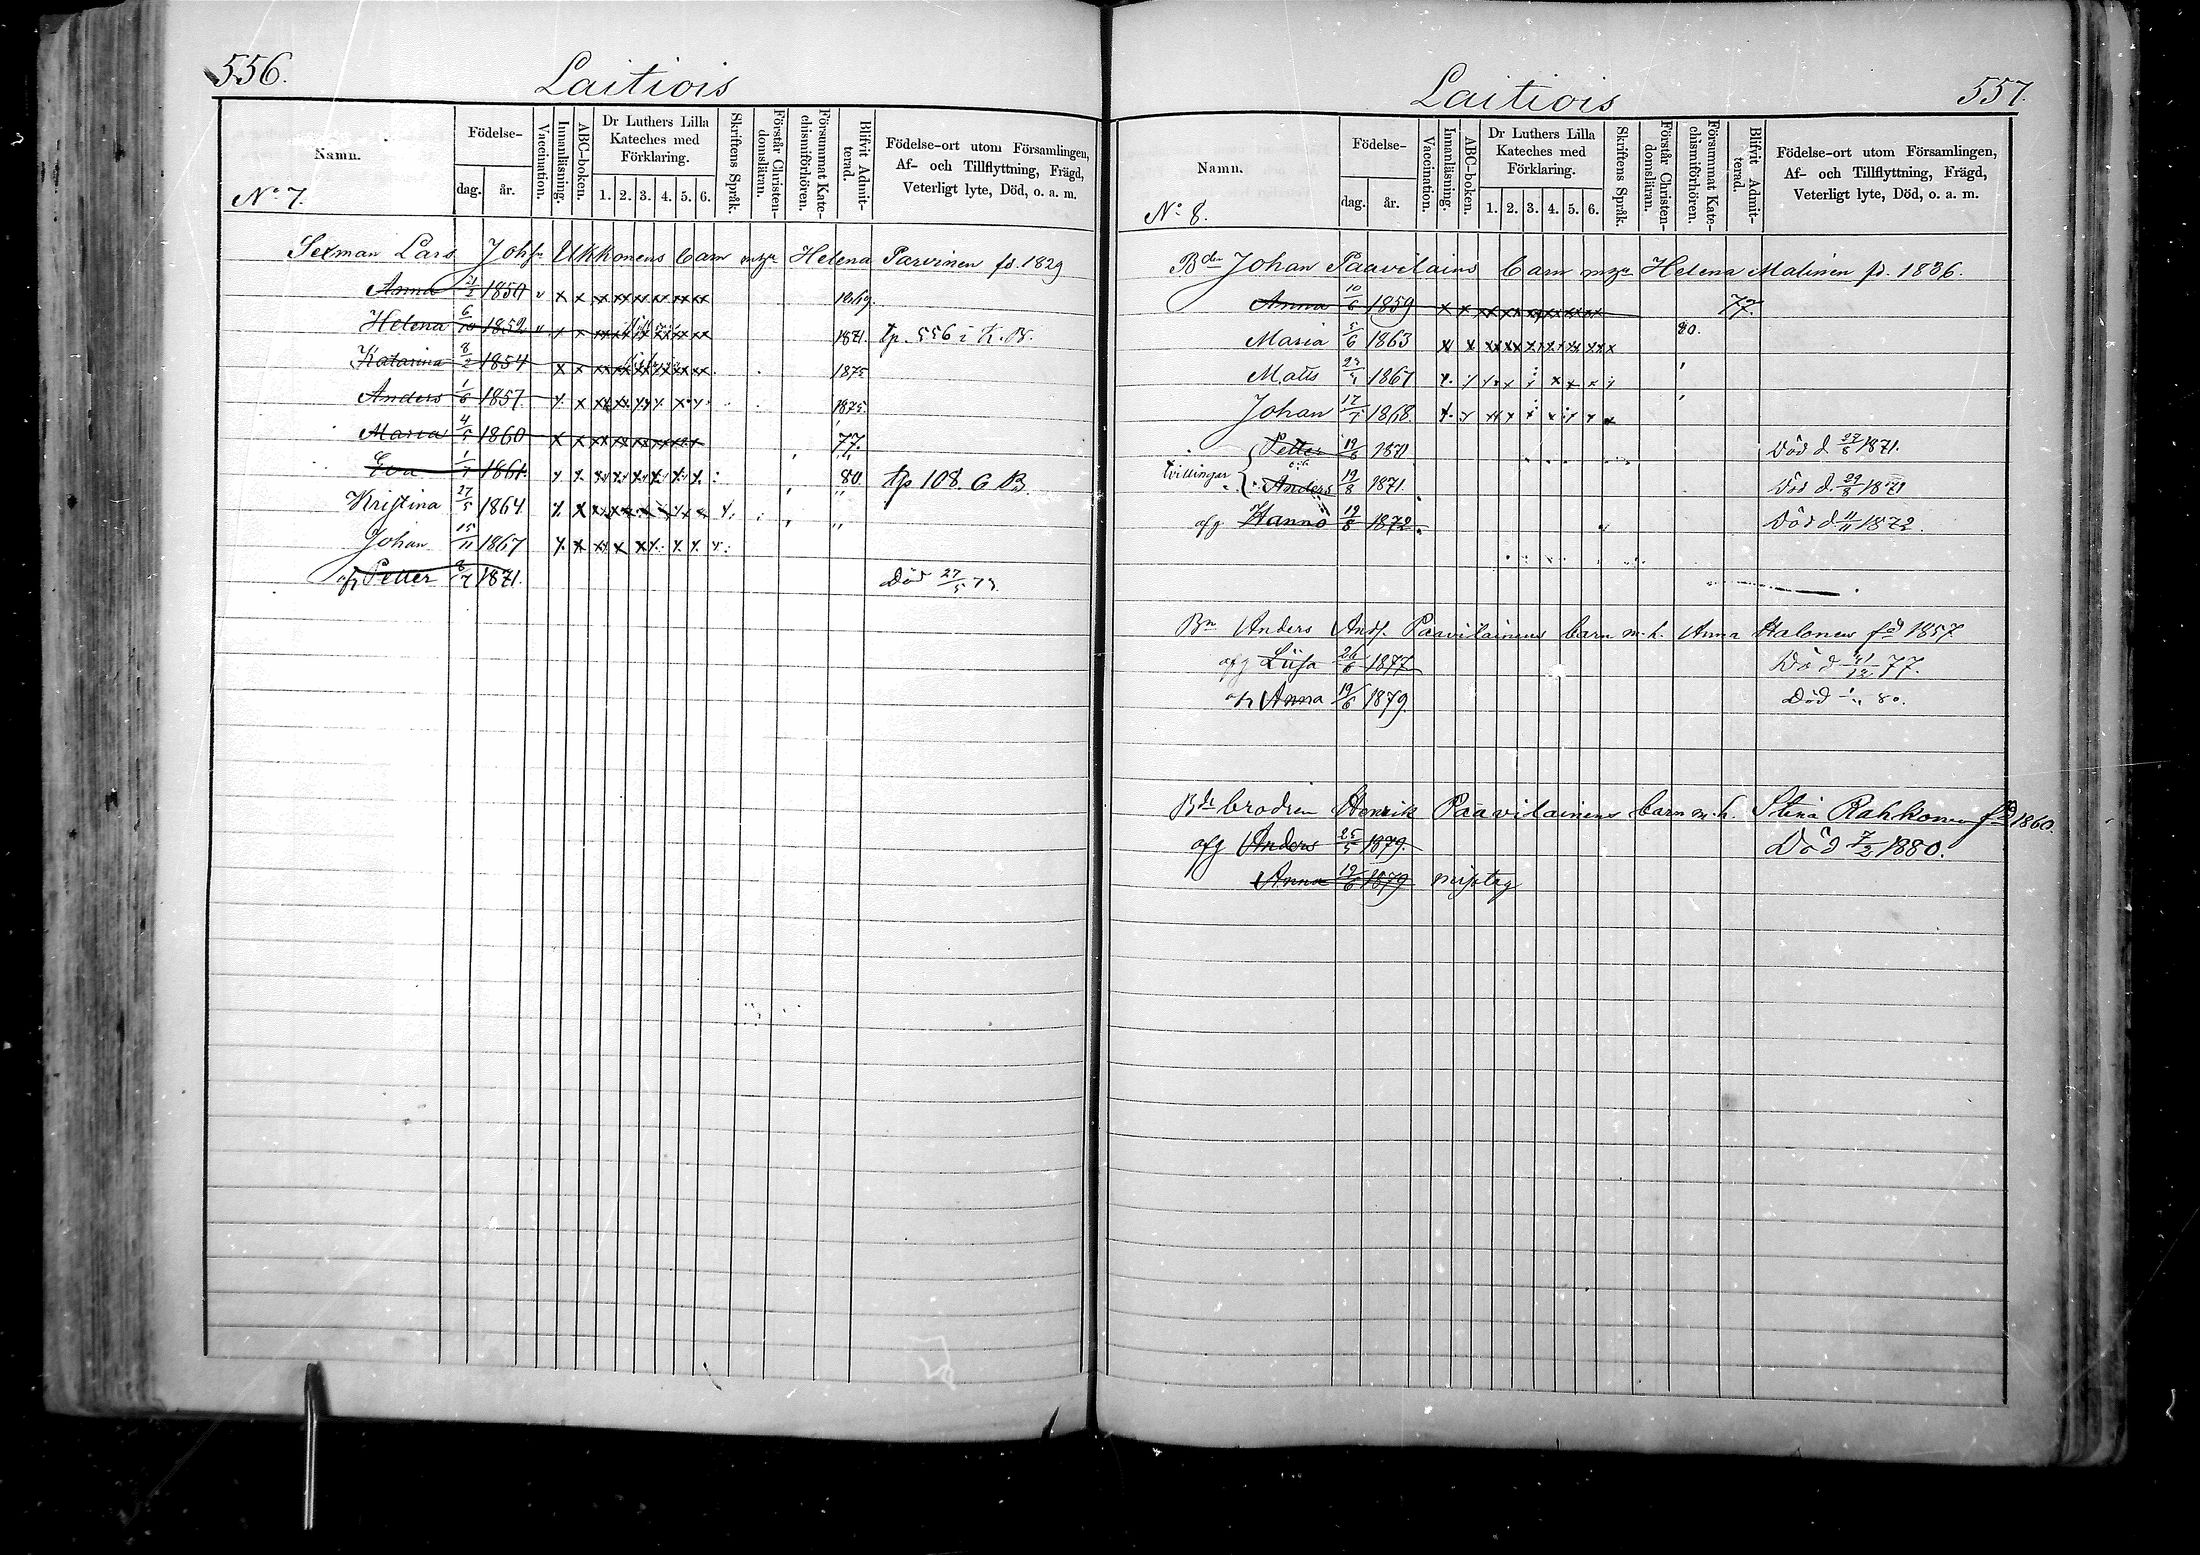 556.
Laitiois
Namn.
Födelse-
dag.
år.
Vaccination.
Innanläsning.
ABC-boken.
Dr Luthers Lilla
Kateches med
Förklaring.
1. 2. 3. 4. 5. 6.
Skriftens Språk.
Förstår Christen-
domsläran.
Försummat Kate-
chismiförhören.
Blifvit Admit-
terad.
Födelse-ort utom Församlingen,
Af- och Tillflyttning, Frägd,
Veterligt lyte, Död, o. a. m.
No 7.
Lars Johs Ukkonens barn Helena Parvinen fd. 1829
Anna 1850 1869
Helena 6/10 1852 1871. tp. 556 i K. B.
Katarina 8/2 1854 1875
Anders 1/6 1857 1875
Maria 4/5 1860 77.
Eva 1861. 80 tp 108. C B.
Kristina 27/5 1864
Johan 15/11 1867
Petter 1871. Död 27/5 73.
557.
Laitiois
Namn.
Födelse-
dag.
år.
Vaccination.
Innanläsning.
ABC-boken.
Dr Luthers Lilla
Kateches med
Förklaring.
1. 2. 3. 4. 5. 6.
Skriftens Språk.
Förstår Christen-
domsläran.
Försummat Kate-
chismiförhören.
Blifvit Admit-
terad.
Födelse-ort utom Församlingen,
Af- och Tillflyttning, Frägd,
Veterligt lyte, Död, o. a. m.
No 8.
Bdn Johan Paavilains barn Helena Malinen fd. 1836.
Anna 10/6 1859 77.
Maria 5/6 1863 80.
Matts 1867
Johan 1868
Petter 19/8 1871 Död d 1871.
tvillingar Anders 19/8 1871. Död d. 29/8 1871
afg Hanno 19/8 1872 Död d 11/11 1872.
Bn Anders Andf. Paavilainens barn m. h. Anna Halonen fd 1857
afg Lüsa 26/6 1877 Död 77.
Anna 19/6 1879. Död 80.
Bde brodren Henrik Paavilainens barn m. h. Stina Rahkonen fd 1860.
afg Anders 25/5 1879. Död 7/2 1880.
Anna 19/6 1879 misstag